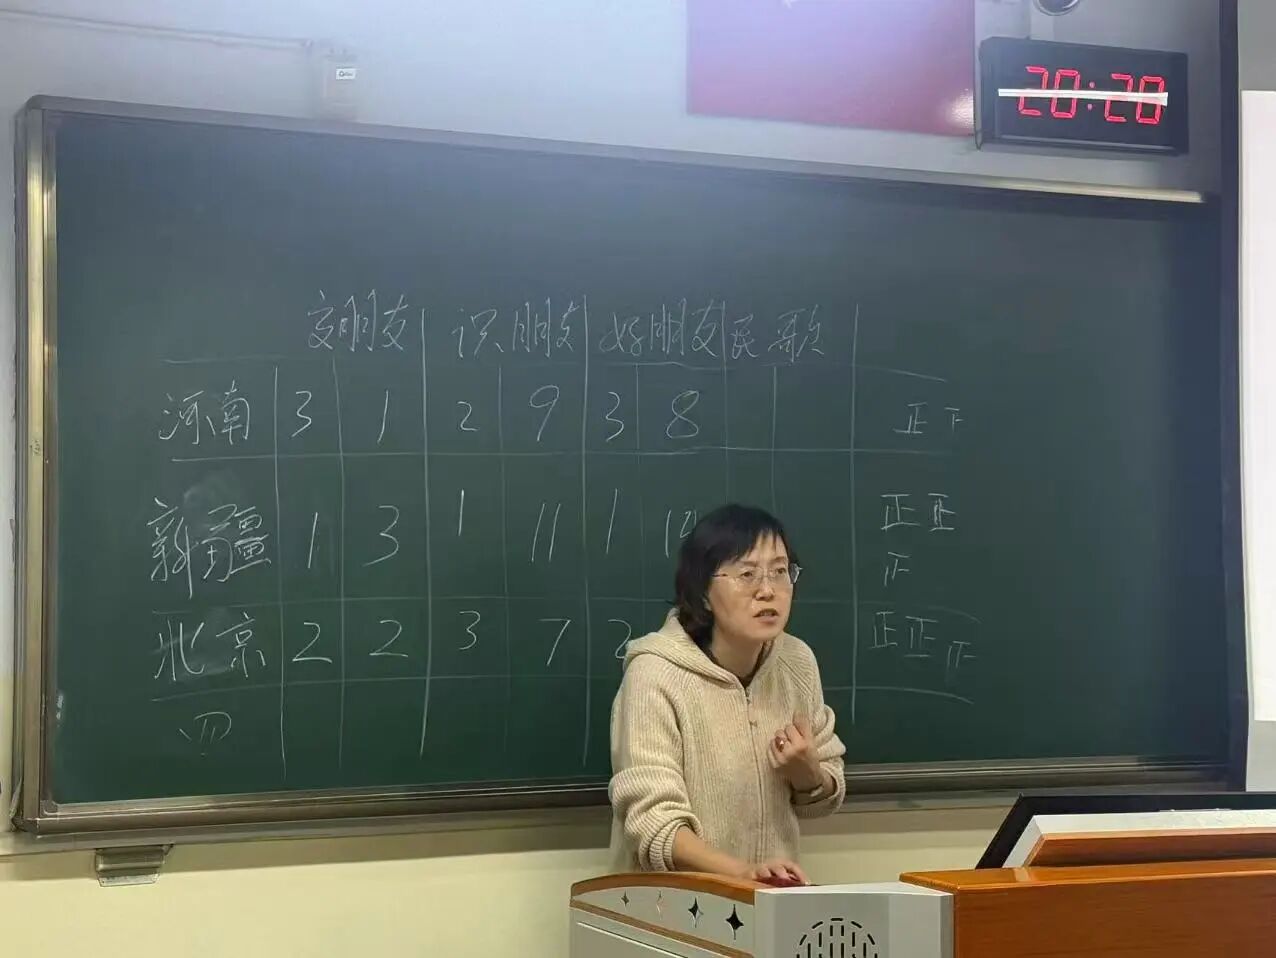 20:20
交朋友 识朋友 好朋友 民歌
河南 3 1 2 9 3 8 正下
新疆 1 3 1 11 1 正正
正
北京 2 2 3 7 2 正正正
四